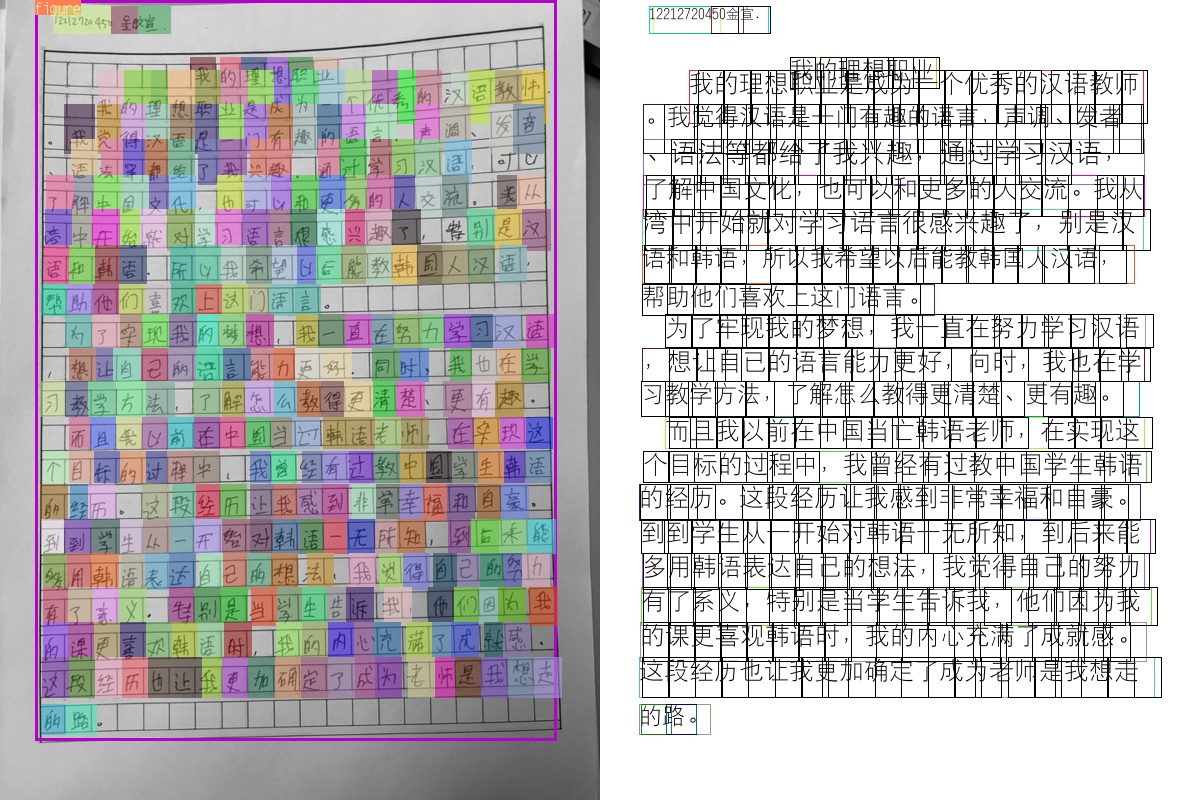 figure
12212720450 金敃宣.
我的理想职业
我的理想职业是成为一个优秀的汉语教师
。我觉得汉语是一门有趣的语言，声调、发音
、语法等都给了我兴趣，通过学习汉语，可以
了解中国文化，也可以和更多的人交流。我从
高中开始就对学习语言很感兴趣了，特别是汉
语和韩语，所以我希望以后能教韩国人汉语，
帮助他们喜欢上这门语言。
为了实现我的梦想，我一直在努力学习汉语
，想让自己的语言能力更好，同时，我也在学
习教学方法，了解怎么教得更清楚、更有趣。
而且我以前在中国当过韩语老师，在实现这
个目标的过程中，我曾经有过教中国学生韩语
的经历。这段经历让我感到非常幸福和自豪。
到到学生从一开始对韩语一无所知，到后来能
够用韩语表达自己的想法，我觉得自己的努力
有了意义，特别是当学生告诉我，他们因为我
的课更喜欢韩语时，我的内心充满了成就感。
这段经历也让我更加确定了成为老师是我想走
的路。
12212720450金宣.
我的理想职业
我的理想职业是成为一个优秀的汉语教师
。我觉得汉语是十门有趣的语言，声调、发者
、语法等都给了我兴趣，通过学习汉语，
了解中国文化，也可以和更多的人交流。我从
湾中开始就对学习语言很感兴趣了，别是汉
语和韩语，所以我希望以后能教韩国人汉语，
帮助他们喜欢上这门语言。
为了牢现我的梦想，我一直在努力学习汉语
，想让自已的语言能力更好，向时，我也在学
习教学方法，了解怎么教得更清楚、更有趣。
而且我以前在中国当亡韩语老师，在实现这
个目标的过程中，我曾经有过教中国学生韩语
的经历。这段经历让我感到非常幸福和自豪。
到到学生从一开始对韩语一无所知，到后来能
多用韩语表达自己的想法，我觉得自己的努力
有了系义，特别是当学生告诉我，他们因为我
的课更喜观韩语时，我的内心充满了成就感。
这段经历也让我更加确定了成为老师是我想走
的路。